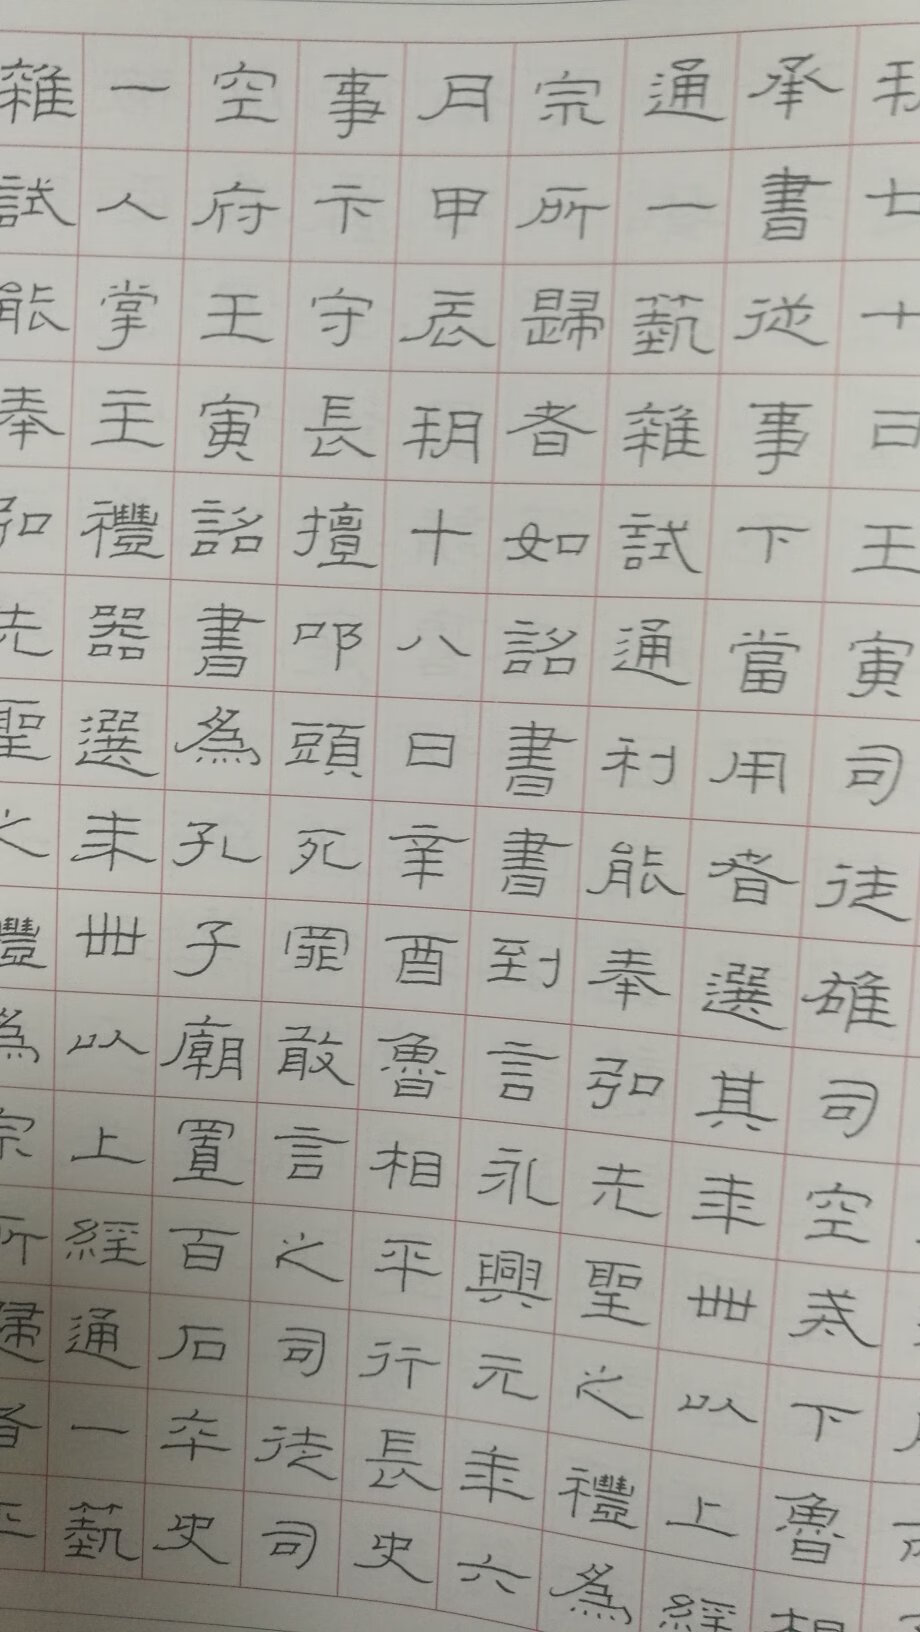 朔廿七日壬寅司徒雄司空戒下魯相
承書從事下當用者選其年卌以上經
通一藝雜試通利能奉弘先聖之禮為
宗所歸者如詔書書到言永興元年六
月甲辰朔十八日辛酉魯相平行長史
事卞守長擅叩頭死罪敢言之司徒司
空府壬寅詔書為孔子廟置百石卒史
一人掌主禮器選年卌以上經通一藝
雜試能奉弘先聖之禮為宗所歸者